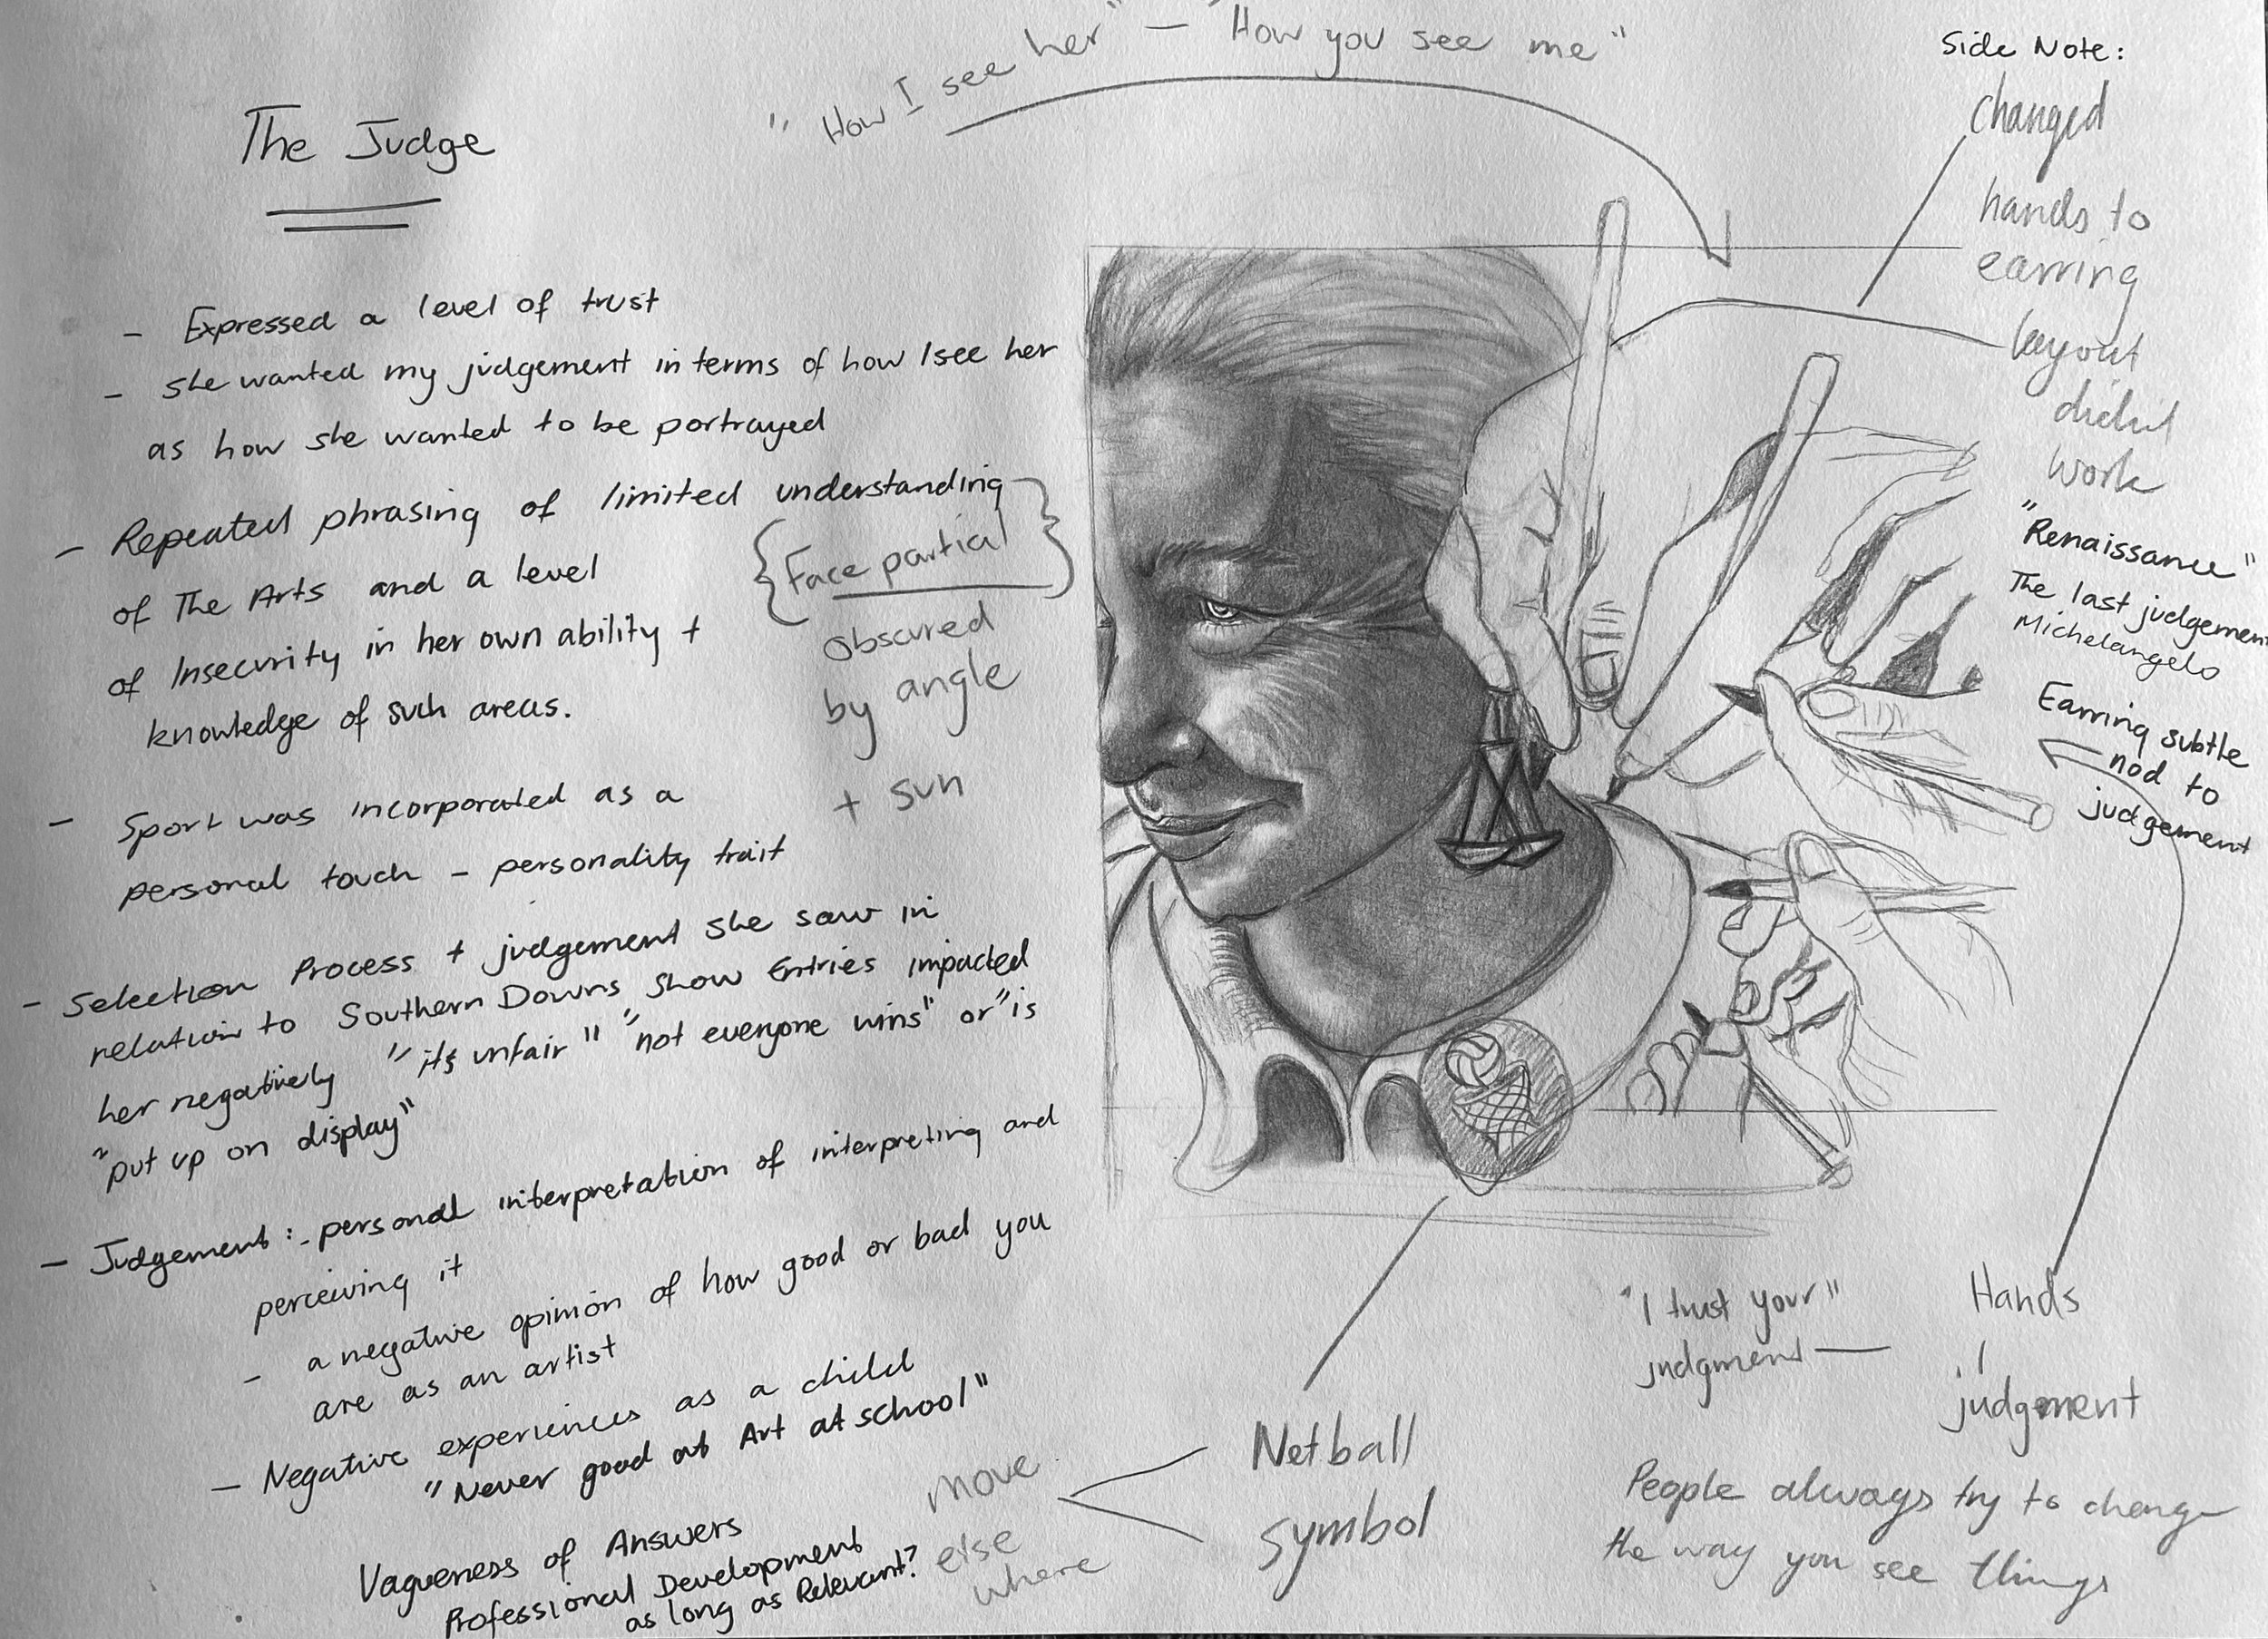 "How I see her" — "How you see me"
The Judge
- Expressed a level of trust
- She wanted my judgement in terms of how I see her
as how she wanted to be portrayed
- Repeated phrasing of limited understanding
of The Arts and a level
of Insecurity in her own ability +
knowledge of such areas.
{Face partial}
obscured
by angle
+ sun
- Sport was incorporated as a
personal touch - personality trait
- Selection Process + judgement she saw in
relation to Southern Downs Show Entries impacted
her negatively "its unfair" "not everyone wins" or "is
"put up on display"
- Judgement :- personal interpretation of interpreting and
perceiving it
- a negative opinion of how good or bad you
are as an artist
- Negative experiences as a child
"Never good at Art at school"
Vagueness of Answers
Professional Development
as long as Relevant?
Side Note:
Changed
hands to
earring
layout
didn't
work
"Renaissance"
The last judgement
Michelangelo
Earring subtle
nod to
judgement
Move
else
where
Netball
symbol
"I trust your"
judgment —
Hands
/
judgement
People always try to change
the way you see things